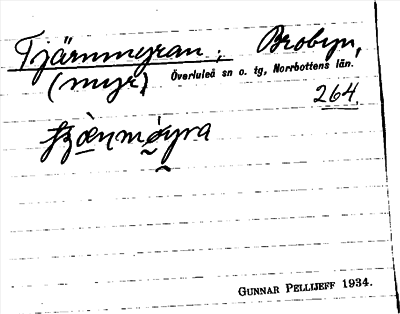 Tjärnmyran; Brobyn,
(myr) Överluleå sn o. tg, Norrbottens län.
264.
GUNNAR PELLIJEFF 1934.